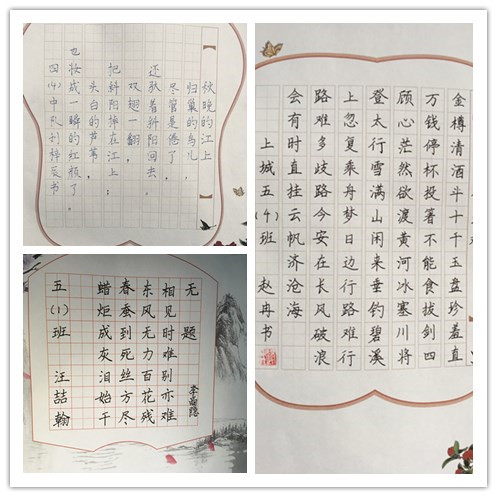 秋晚的江上
归巢的鸟儿，
尽管是倦了，
还驮着斜阳回去。
双翅一翻，
把斜阳掉在江上；
头白的芦苇，
也妆成一瞬的红颜了。
四(4)中队刘梓辰书
金樽清酒斗十千玉盘珍羞直
万钱停杯投箸不能食拔剑四
顾心茫然欲渡黄河冰塞川将
登太行雪满山闲来垂钓碧溪
上忽复乘舟梦日边行路难行
路难多歧路今安在长风破浪
会有时直挂云帆济沧海
上城五(4)班 赵冉书
无题 李商隐
相见时难别亦难
东风无力百花残
春蚕到死丝方尽
蜡炬成灰泪始干
五(1)班 汪喆翰